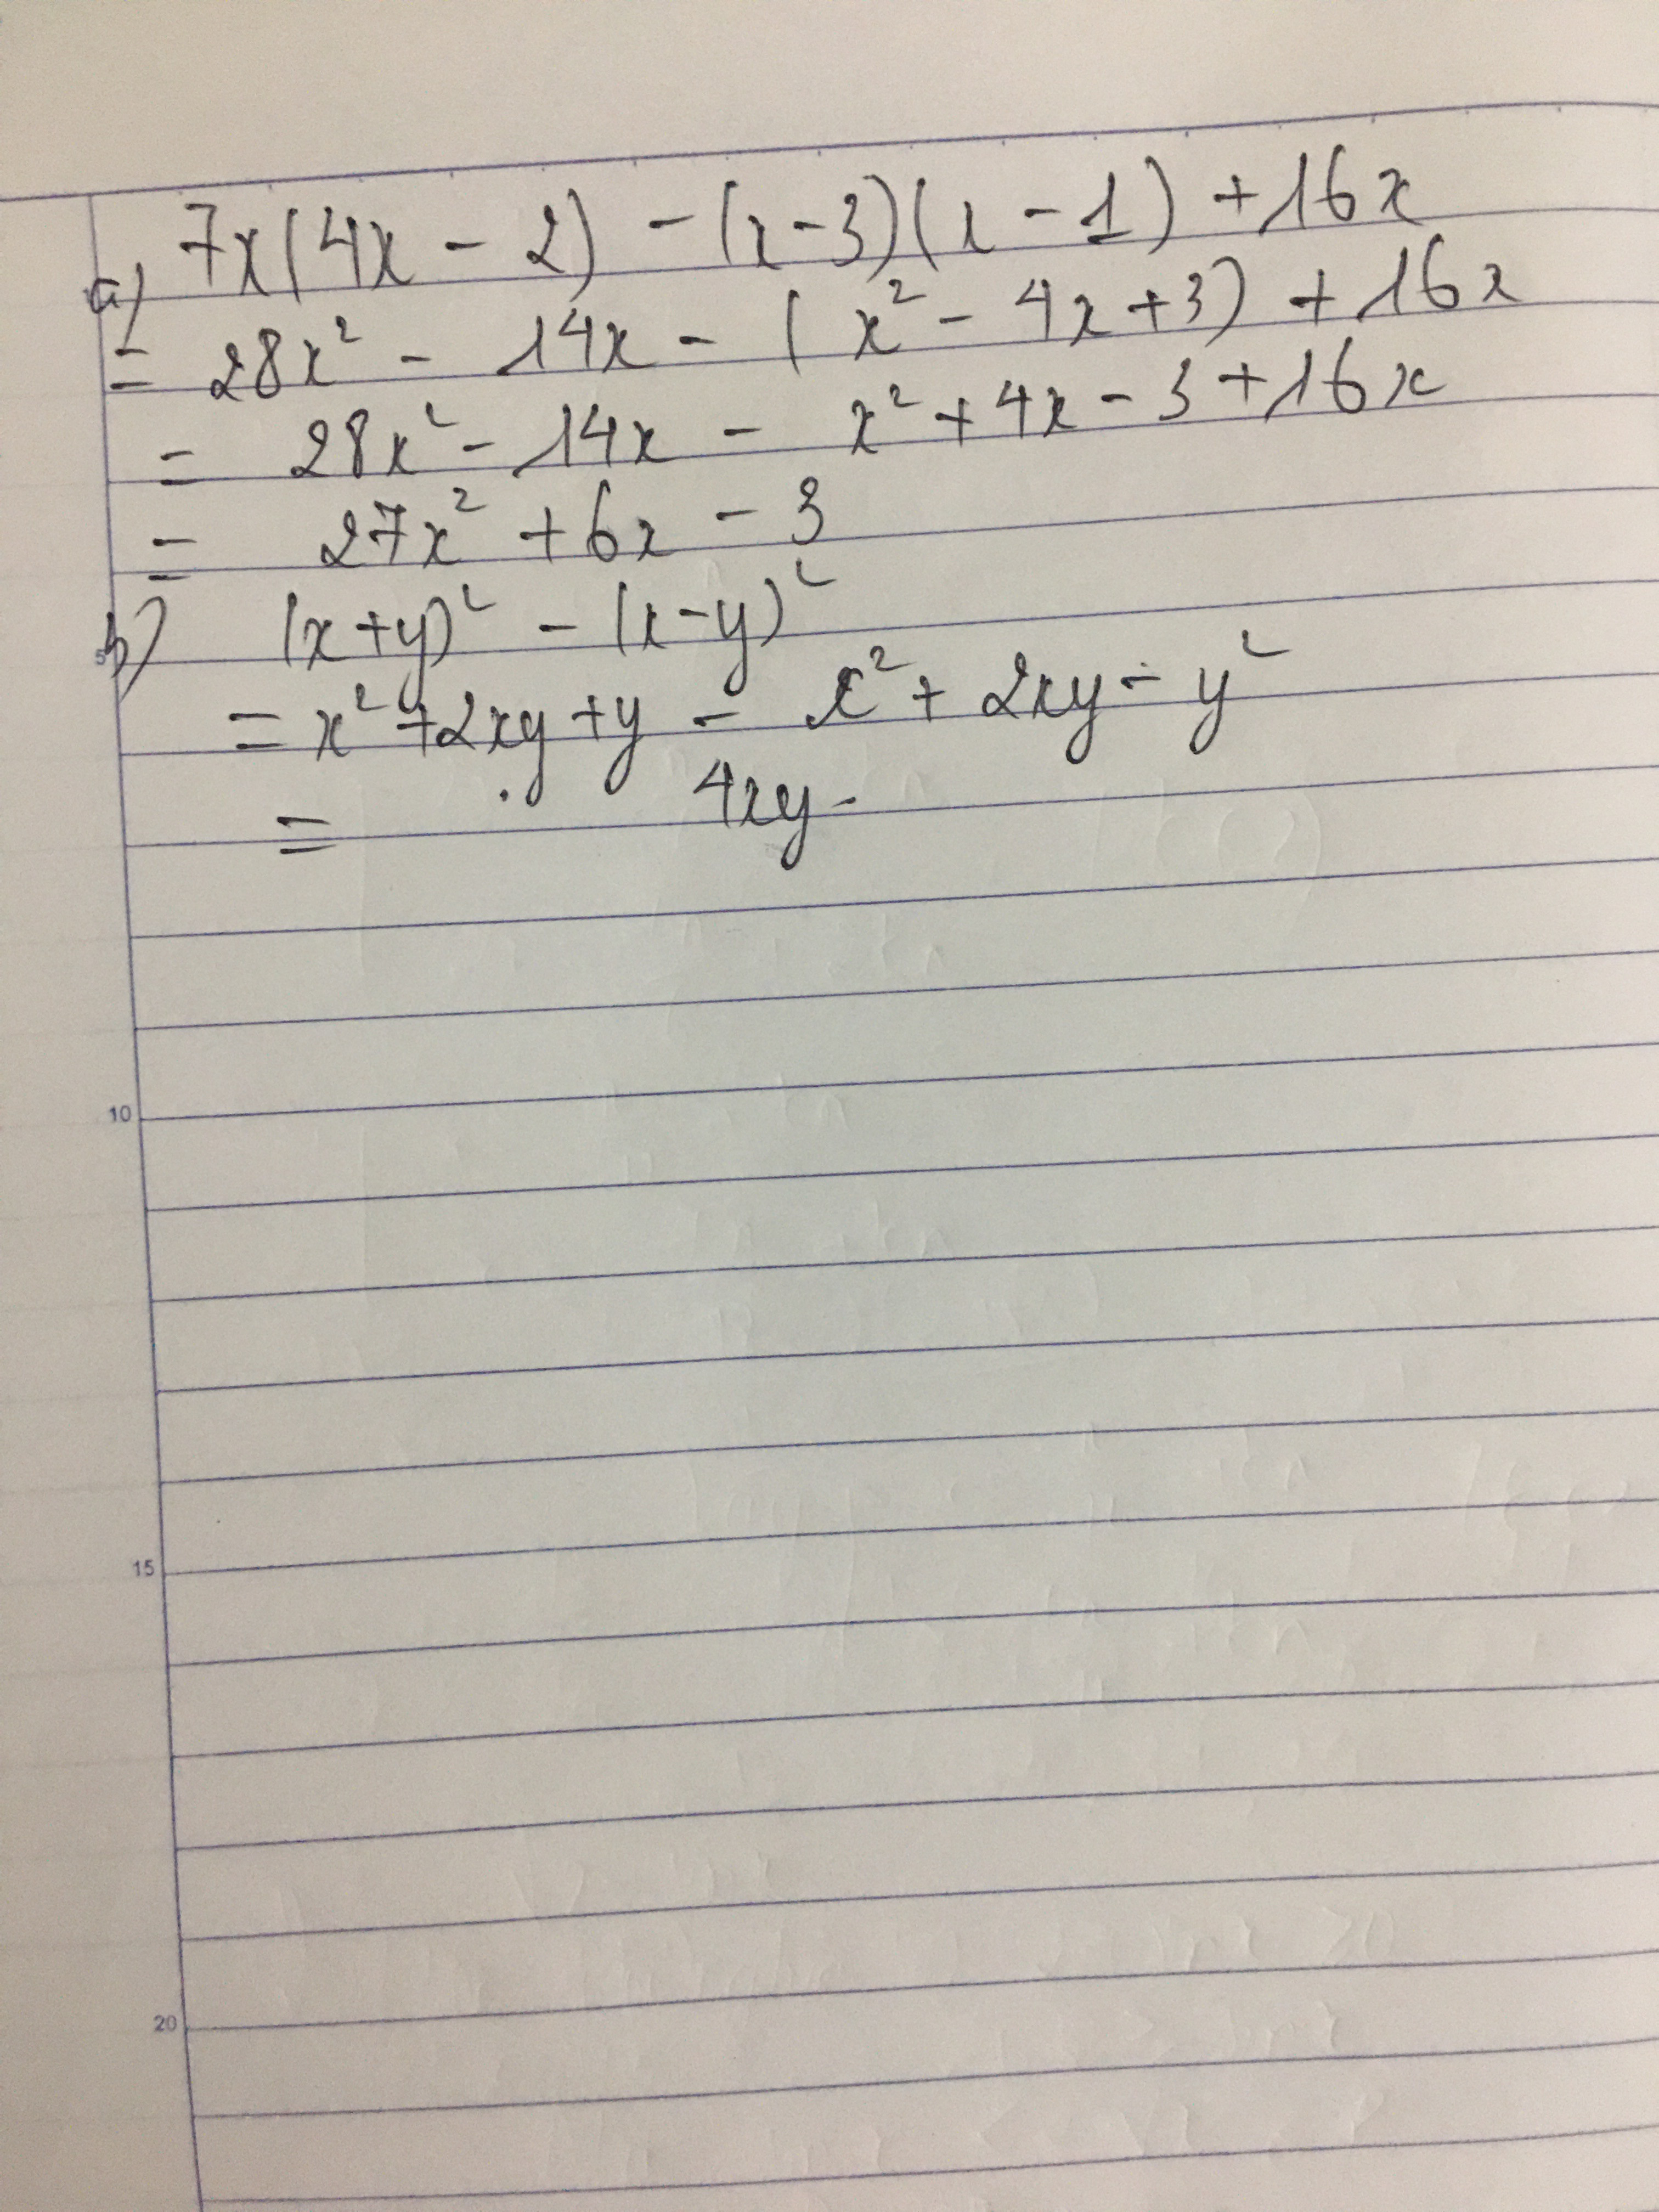 a) 7x(4x - 2) - (x-3)(x-1) + 16x
= 28x² - 14x - (x² - 4x + 3) + 16x
= 28x² - 14x - x² + 4x - 3 + 16x
= 27x² + 6x - 3
5
b) (x+y)² - (x-y)²
= x² + 2xy + y - x² + 2xy - y²
= 4xy -
10
15
20